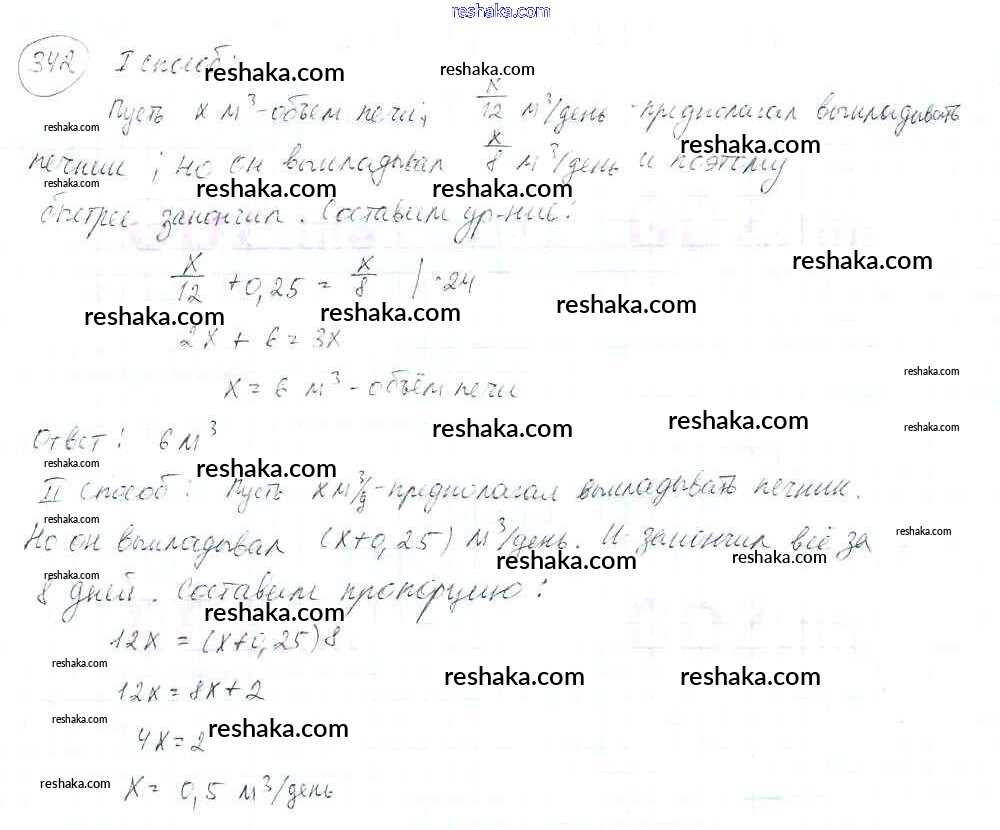 reshaka.com
342 I способ:
reshaka.com reshaka.com
Пусть x м³ - объем печи; x/12 м³/день - предполагал выкладывать
reshaka.com reshaka.com
печник; но он выкладывал x/8 м³/день и поэтому
reshaka.com reshaka.com reshaka.com
быстрее закончил. Составим ур-ние:
reshaka.com
x/12 + 0,25 = x/8 | ·24
reshaka.com reshaka.com reshaka.com
2x + 6 = 3x
reshaka.com
x = 6 м³ - объём печи
reshaka.com reshaka.com reshaka.com
Ответ: 6 м³
reshaka.com reshaka.com
II способ: Пусть x м³/д - предполагал выкладывать печник.
reshaka.com reshaka.com
Но он выкладывал (x+0,25) м³/день. И закончил всё за
reshaka.com reshaka.com reshaka.com
8 дней. Составим пропорцию:
reshaka.com
12x = (x+0,25)8
reshaka.com reshaka.com reshaka.com
12x = 8x + 2
reshaka.com reshaka.com
4x = 2
reshaka.com
x = 0,5 м³/день